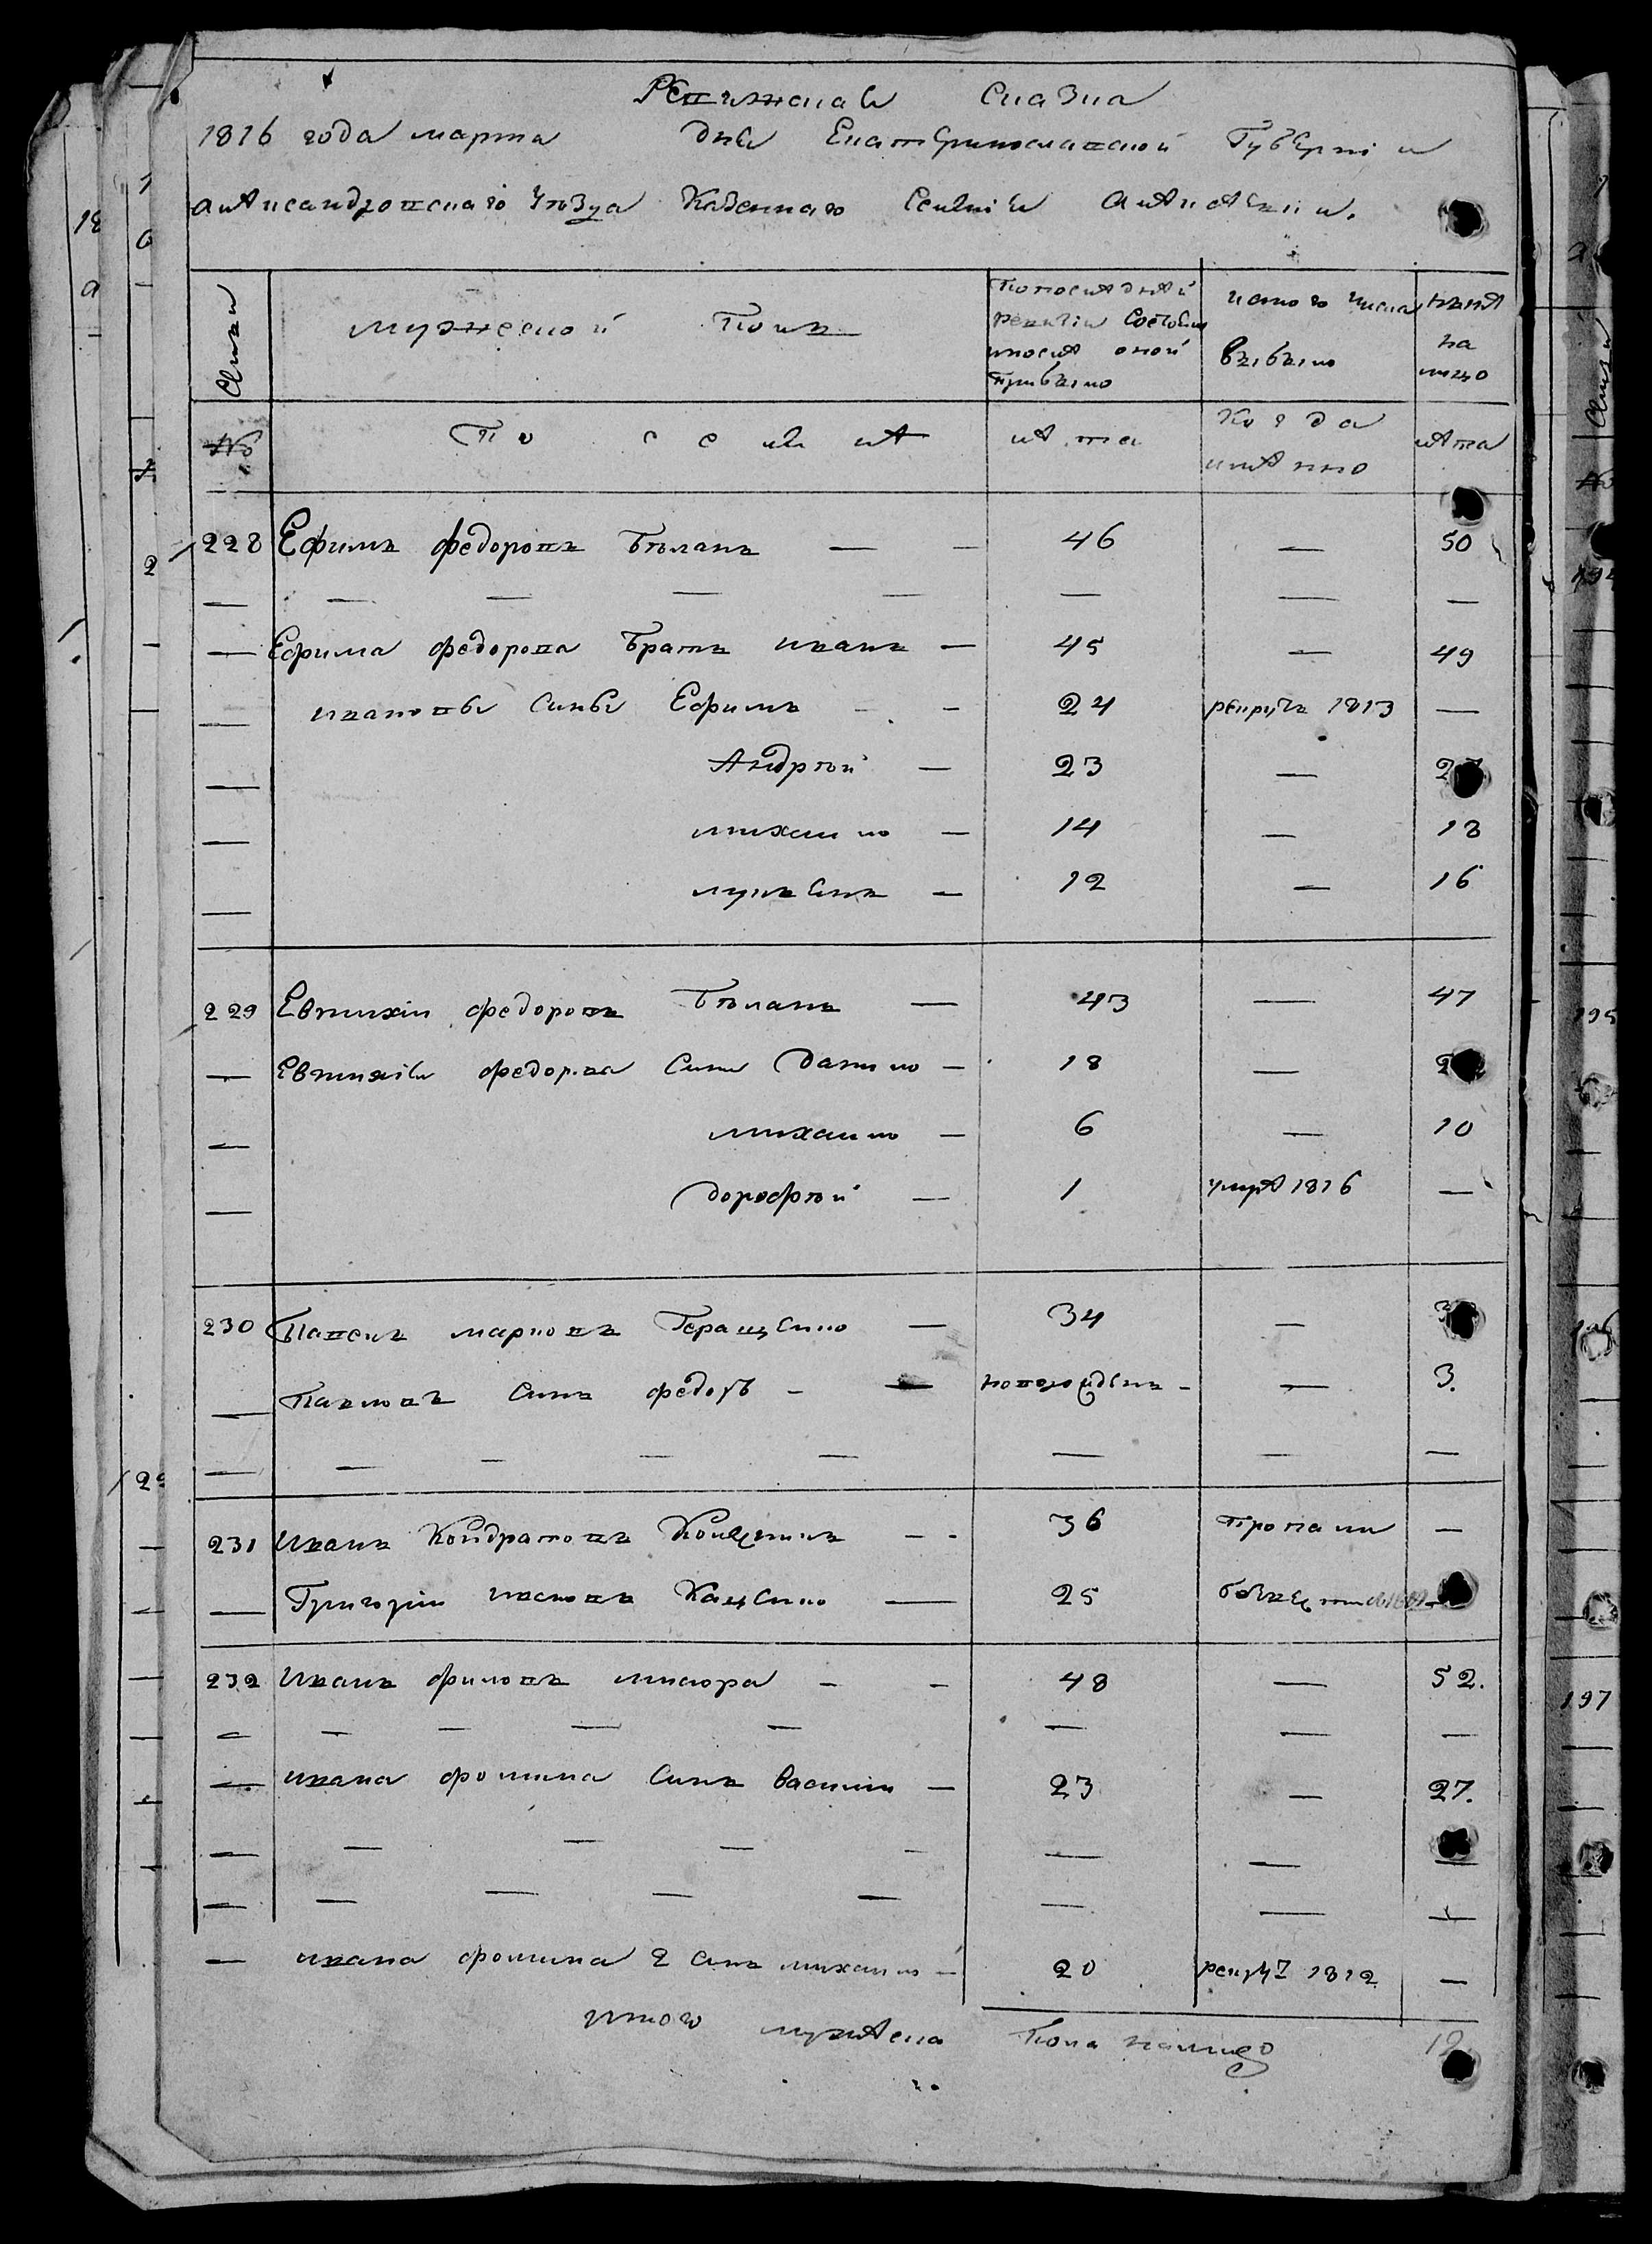 Ревижская Сказка
1816 года марта дня Екатеринославской Губерніи
александровскаго Уезда Казеннаго Селенія алексеевки.
Семьи
мужеской Полъ
По последней ревизіи Состояло и после оной прибыло
ис того числа выбыло
ныне на лицо
№
Поселяне
лета
Когда имянно
лета
228 Ефимъ федоровъ Бѣланъ — 46 — 50
Ефима федорова Братъ иванъ — 45 — 49
ивановы Сины Ефимъ — 24 рекрутъ 1813 —
Андрѣй — 23 — 27
михаило — 14 — 18
лукъянъ — 12 — 16
229 Евтихіи федоровъ Бѣланъ — 43 — 47
Евтихія федорова Сини Данило — 18 — 2
михаило — 6 — 10
дорофѣй — 1 умре 1816 —
230 Павелъ марковъ Геращенко — 34 — 3
Павловъ Синъ федоръ — новорожденъ — 3.
231 иванъ Кондратовъ 36 пропали —
Григоріи Кащенко — 25
232 иванъ фоминъ мисюра — 48 — 52.
ивана фомина Синъ василии — 23 — 27.
ивана фомина 2 Синъ михаило — 20 рекрутъ 1812 —
итого мужеска Пола налицо 12